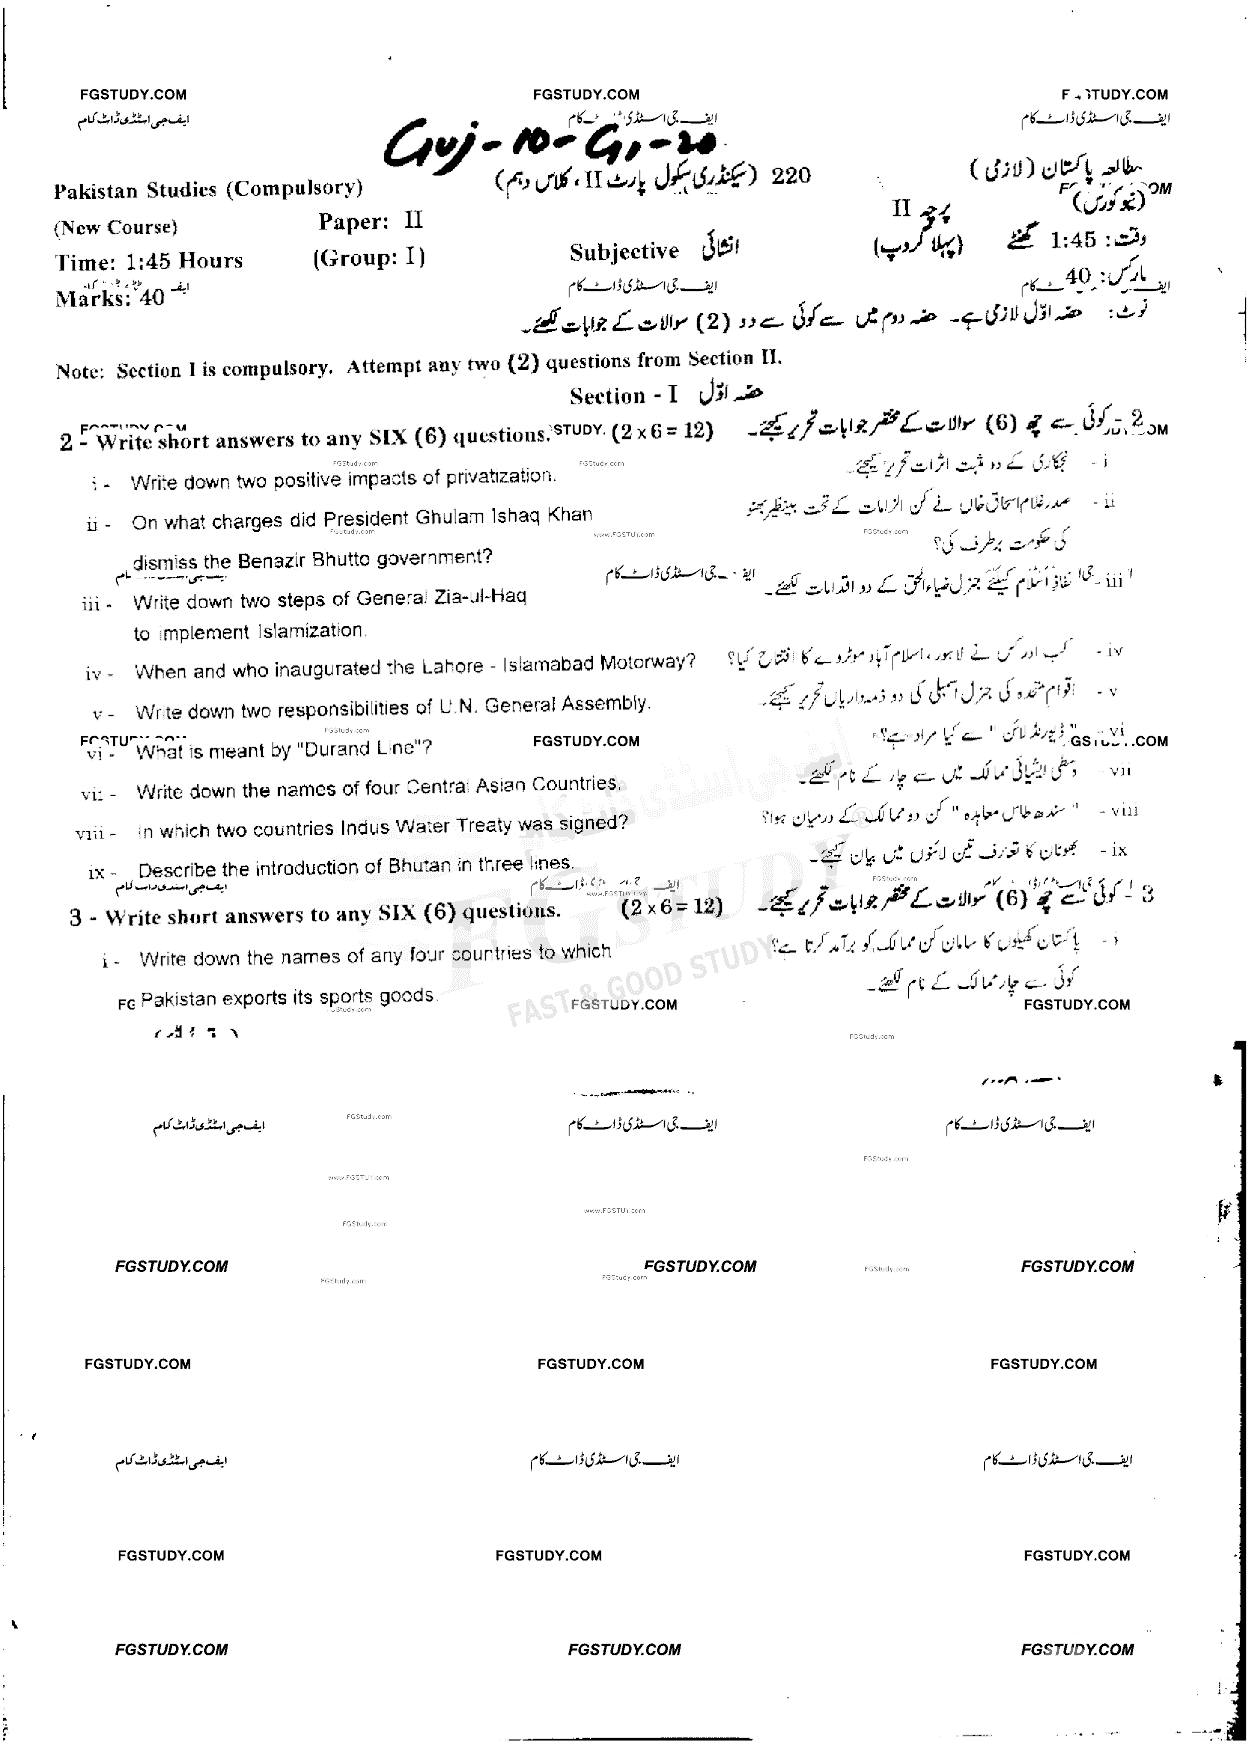 FGSTUDY.COM FGSTUDY.COM F STUDY.COM
ایف جی اسٹڈی ڈاٹ کام ایف جی اسٹڈی ڈاٹ کام ایف جی اسٹڈی ڈاٹ کام
Guj-10-G1-20
مطالعہ پاکستان (لازمی)
220 (سیکنڈری سکول پارٹ II، کلاس دہم)
Pakistan Studies (Compulsory)
(نیو کورس)
(New Course) Paper: II
پرچہ II
Time: 1:45 Hours (Group: I) Subjective انشائی
وقت: 1:45 گھنٹے (پہلا گروپ)
Marks: 40
مارکس: 40
ایف جی اسٹڈی ڈاٹ کام
نوٹ: حصہ اوّل لازمی ہے۔ حصہ دوم میں سے کوئی سے دو (2) سوالات کے جوابات لکھئے۔
Note: Section I is compulsory. Attempt any two (2) questions from Section II.
Section - I حصہ اوّل
2 - Write short answers to any SIX (6) questions. (2 x 6 = 12)
2 - کوئی سے چھ (6) سوالات کے مختصر جوابات تحریر کیجئے۔
FGStudy.com FGStudy.com
i - Write down two positive impacts of privatization.
i - نجکاری کے دو مثبت اثرات تحریر کیجئے۔
ii - On what charges did President Ghulam Ishaq Khan
ii - صدر غلام اسحاق خاں نے کن الزامات کے تحت بینظیر بھٹو
FGStudy.com www.FGSTUY.com FGStudy.com
dismiss the Benazir Bhutto government?
کی حکومت برطرف کی؟
ایف جی اسٹڈی ڈاٹ کام
iii - Write down two steps of General Zia-ul-Haq
iii - نفاذِ اسلام کیلئے جنرل ضیاءالحق کے دو اقدامات لکھئے۔
to implement Islamization.
iv - When and who inaugurated the Lahore - Islamabad Motorway?
iv - کب اور کس نے لاہور، اسلام آباد موٹروے کا افتتاح کیا؟
v - Write down two responsibilities of U.N. General Assembly.
v - اقوام متحدہ کی جنرل اسمبلی کی دو ذمہ داریاں تحریر کیجئے۔
FGStudy.com
vi - What is meant by "Durand Line"?
vi - "ڈیورنڈ لائن" سے کیا مراد ہے؟
FGSTUDY.COM
vii - Write down the names of four Central Asian Countries.
vii - وسطی ایشیائی ممالک میں سے چار کے نام لکھئے۔
viii - In which two countries Indus Water Treaty was signed?
viii - "سندھ طاس معاہدہ" کن دو ممالک کے درمیان ہوا؟
ix - Describe the introduction of Bhutan in three lines.
ix - بھوٹان کا تعارف تین لائنوں میں بیان کیجئے۔
ایف جی اسٹڈی ڈاٹ کام FGStudy.com
3 - Write short answers to any SIX (6) questions. (2 x 6 = 12)
3 - کوئی سے چھ (6) سوالات کے مختصر جوابات تحریر کیجئے۔
FGSTUDY
FAST & GOOD STUDY
i - Write down the names of any four countries to which
i - پاکستان کھیلوں کا سامان کن ممالک کو برآمد کرتا ہے؟
Pakistan exports its sports goods.
کوئی سے چار ممالک کے نام لکھئے۔
FGSTUDY.COM FGSTUDY.COM
FGStudy.com FGStudy.com
FGStudy.com
ایف جی اسٹڈی ڈاٹ کام ایف جی اسٹڈی ڈاٹ کام ایف جی اسٹڈی ڈاٹ کام
FGStudy.com
www.FGSTUY.com
www.FGSTUY.com
FGStudy.com
FGSTUDY.COM FGSTUDY.COM FGSTUDY.COM
FGStudy.com FGStudy.com FGStudy.com
FGSTUDY.COM FGSTUDY.COM FGSTUDY.COM
ایف جی اسٹڈی ڈاٹ کام ایف جی اسٹڈی ڈاٹ کام ایف جی اسٹڈی ڈاٹ کام
FGSTUDY.COM FGSTUDY.COM FGSTUDY.COM
FGSTUDY.COM FGSTUDY.COM FGSTUDY.COM